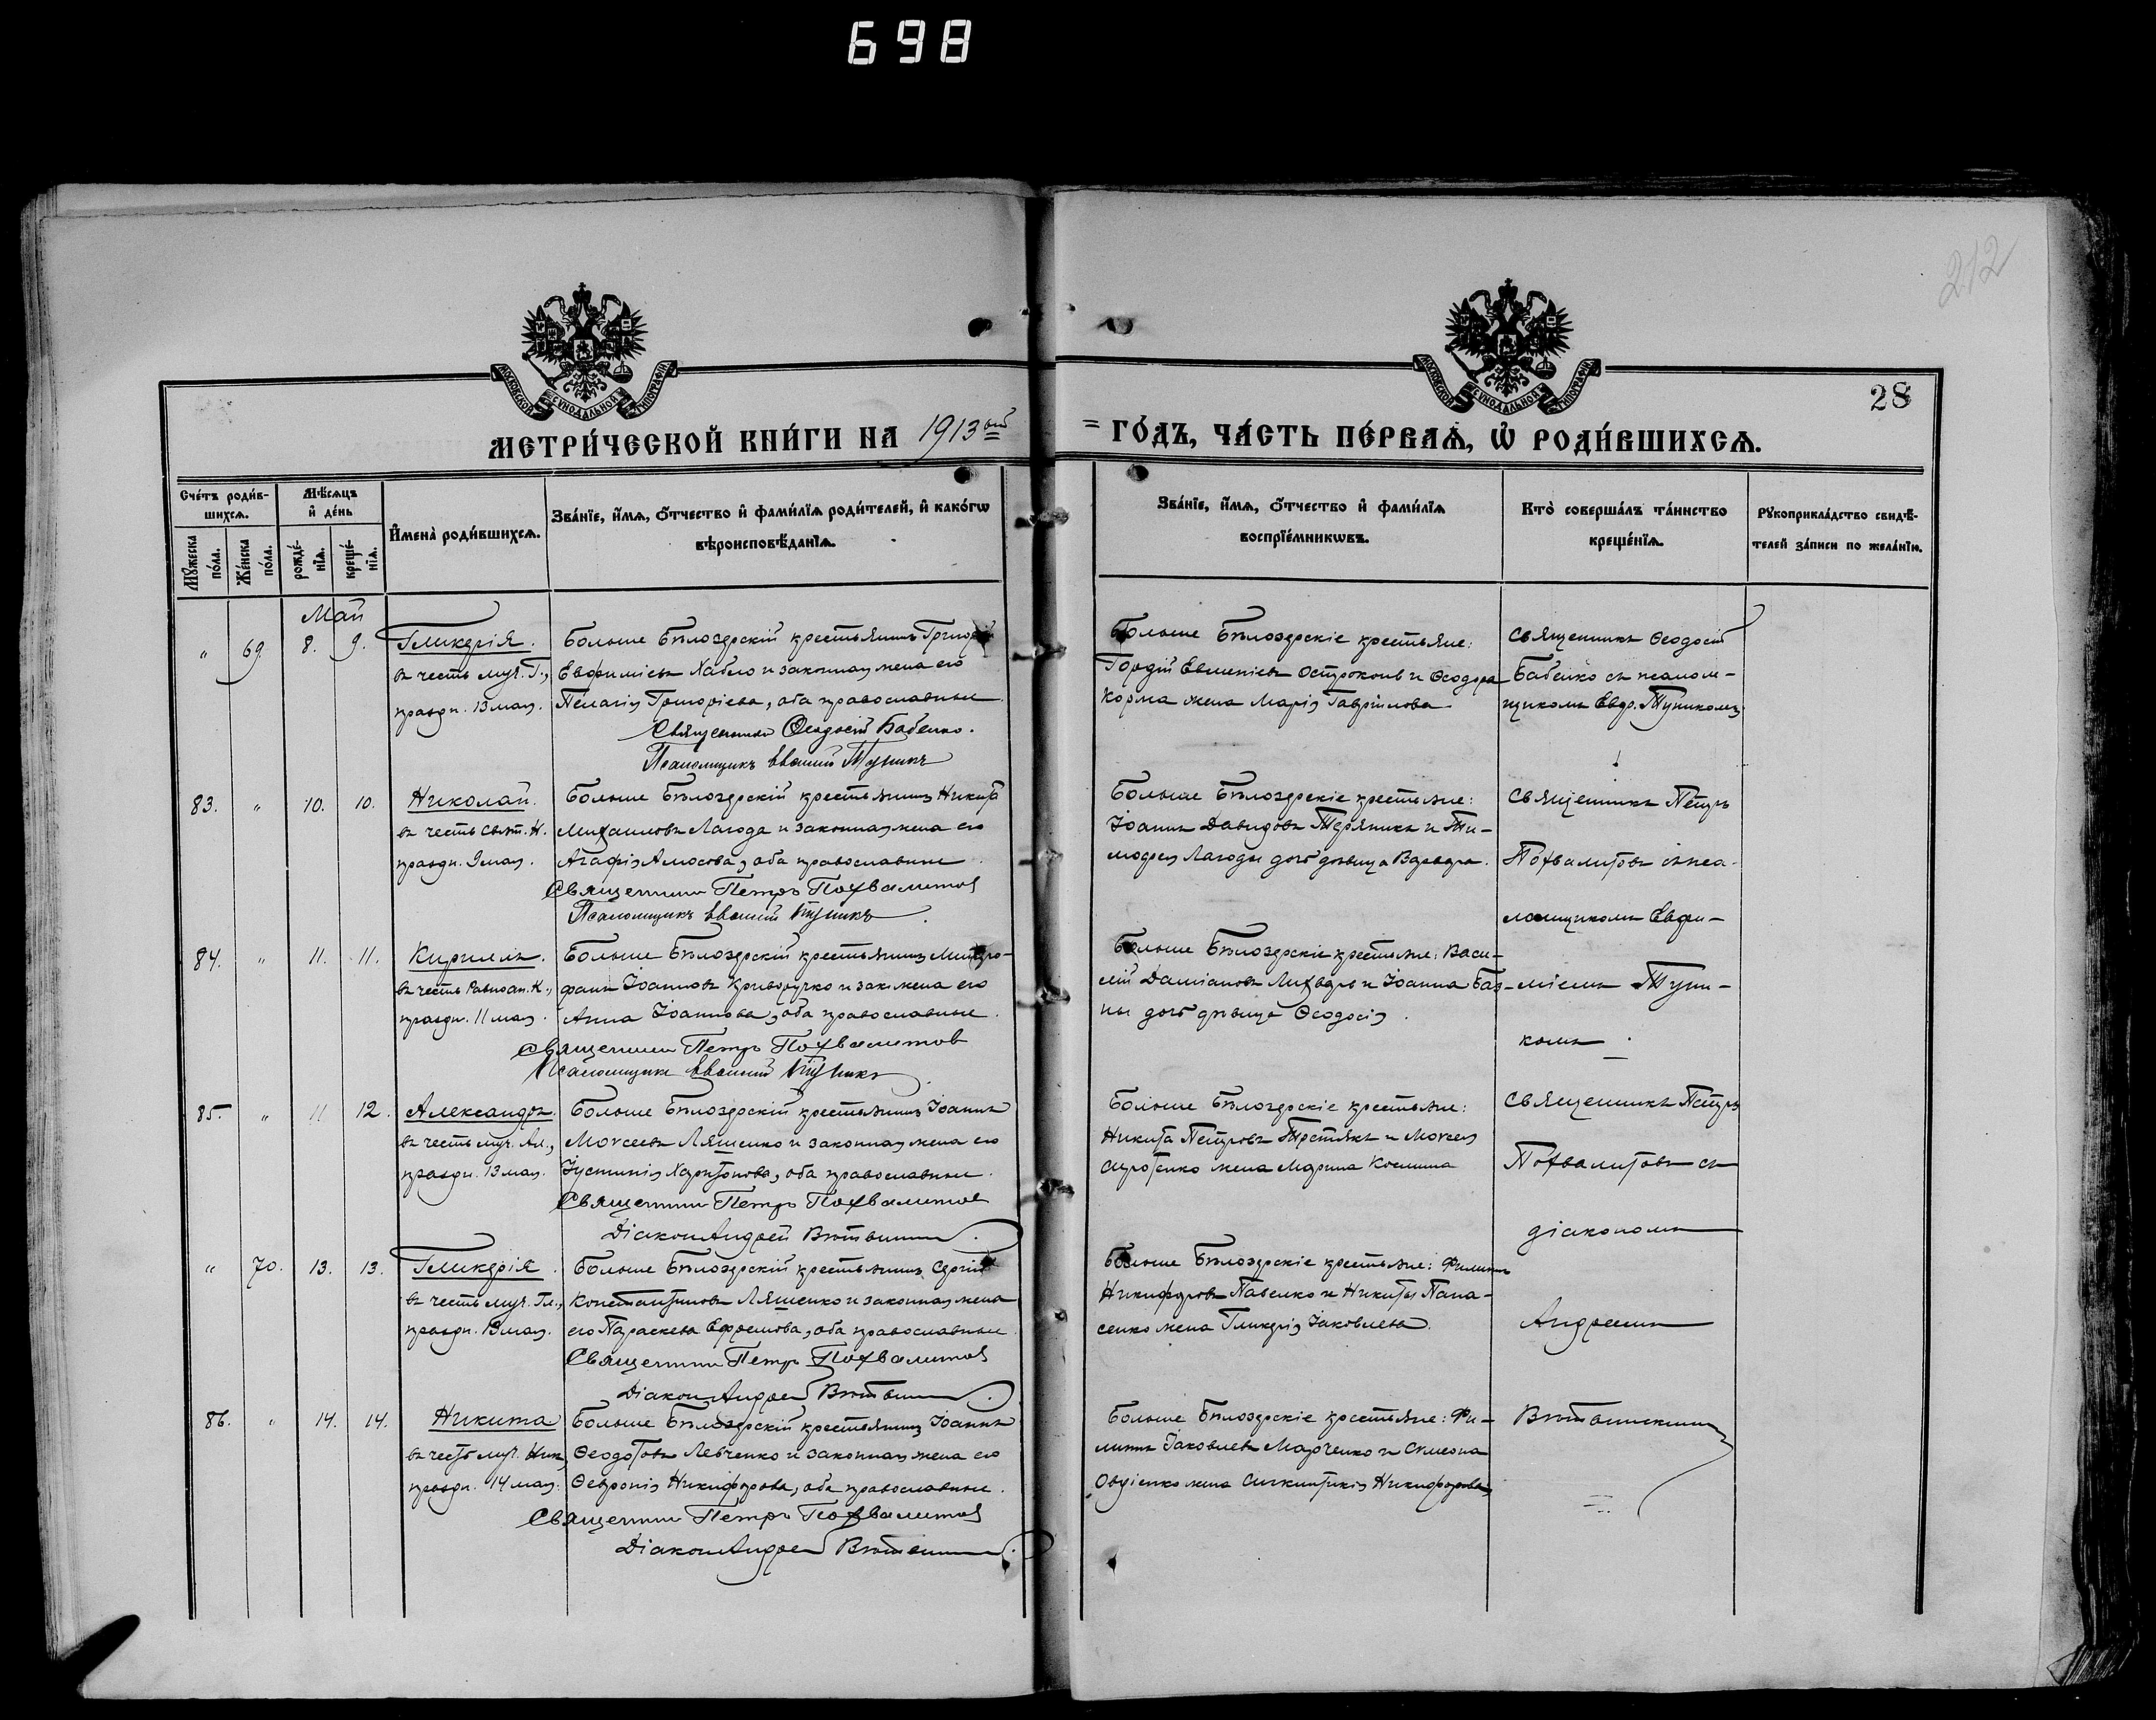 698
212
28
МОСКОВСКОЙ СѴНОДАЛЬНОЙ ТИПОГРАФІИ
МОСКОВСКОЙ СѴНОДАЛЬНОЙ ТИПОГРАФІИ
МЕТРИ́ЧЕСКОЙ КНИ́ГИ НА 1913ый
= ГО́ДЪ, ЧА́СТЬ ПЕ́РВАѦ, Ѡ҆ РОДИ́ВШИХСѦ.
Сче́тъ роди́в-
шихсѧ.
Мѣ́сѧцъ
и҆ де́нь
Мꙋ́жеска по́ла.
Же́нска по́ла.
рожде́-
нїѧ.
креще́-
нїѧ.
И҆мена̀ роди́вшихсѧ.
Зва́нїе, и҆́мѧ, ѻ҆́тчество и҆ фами́лїѧ роди́телей, и҆ како́гѡ
вѣроисповѣ́данїѧ.
Зва́нїе, и҆́мѧ, ѻ҆́тчество и҆ фами́лїѧ
воспрїе́мникѡвъ.
Кто̀ соверша́лъ та́инство
креще́нїѧ.
Рꙋкоприкла́дство свидѣ́-
телей за́писи по жела́нїю.
Май
" 69. 8. 9. Гликерія.
въ честь муч. Г.,
праздн. 13 мая.
Больше Бѣлозерскій крестьянинъ Григорій
Евфиміевъ Хабло и законная жена его
Пелагія Григоріева, оба православные
Священникъ Ѳеодосій Бабенко.
Псаломщикъ Евѳимій Тупикъ
Больше Бѣлозерскіе крестьяне:
Гордій Евменіевъ Остроконь и Ѳеодора
Корма жена Марія Гавріилова
Священникъ Ѳеодосій
Бабенко съ псалом-
щикомъ Евф. Тупикомъ
83. " 10. 10. Николай.
въ честь Свят. Н.
праздн. 9 мая.
Больше Бѣлозерскій крестьянинъ Никита
Михаиловъ Лагода и законная жена его
Агафія Амосова, оба православные.
Священникъ Петръ Похвалитовъ
Псаломщикъ Евѳимій Тупикъ
Больше Бѣлозерскіе крестьяне:
Іоаннъ Давидовъ Терянихъ и Ти-
мофея Лагоды дочь дѣвица Варвара.
Священникъ Петръ
Похвалитовъ съ пса-
ломщикомъ Евфи-
міемъ Тупи-
комъ.
84. " 11. 11. Кириллъ.
въ честь Равноап. К.,
праздн. 11 мая.
Больше Бѣлозерскій крестьянинъ Митро-
фанъ Іоанновъ Криворучко и зак. жена его
Анна Іоаннова, оба православные.
Священникъ Петръ Похвалитовъ
Псаломщикъ Евѳимій Тупикъ
Больше Бѣлозерскіе крестьяне: Васи-
лій Даміановъ Лихварь и Іоанна Баз-
ны дочь дѣвица Ѳеодосія.
85. " 11 12. Александръ.
въ честь муч. Ал.,
праздн. 13 мая.
Больше Бѣлозерскій крестьянинъ Іоаннъ
Моѵсеевъ Ляшенко и законная жена его
Іустинія Харитонова, оба православные.
Священникъ Петръ Похвалитовъ
Діаконъ Андрей
Больше Бѣлозерскіе крестьяне:
Никита Петровъ Третякъ и Моѵсея
Сиротенко жена Марина Косьмина
Священникъ Петръ
Похвалитовъ съ
діакономъ
Андреемъ
" 70. 13. 13. Гликерія.
въ честь муч. Гл.,
праздн. 13 мая.
Больше Бѣлозерскій крестьянинъ Сергій
Константиновъ Ляшенко и законная жена
его Параскева Ефремова, оба православные.
Священникъ Петръ Похвалитовъ
Діаконъ Андрей
Больше Бѣлозерскіе крестьяне: Филиппъ
Никифоровъ Павленко и Никиты Пана-
сенко жена Гликерія Іаковлева.
86. " 14. 14. Никита
въ честь муч. Ник.,
праздн. 14 мая.
Больше Бѣлозерскій крестьянинъ Іоаннъ
Ѳеодотовъ Левченко и законная жена его
Ѳевронія Никифорова, оба православные.
Священникъ Петръ Похвалитовъ
Діаконъ Андрей
Больше Бѣлозерскіе крестьяне: Фи-
липпъ Іаковлевъ Марченко и Симеона
Овдіенко жена Сигклитикія Никифорова